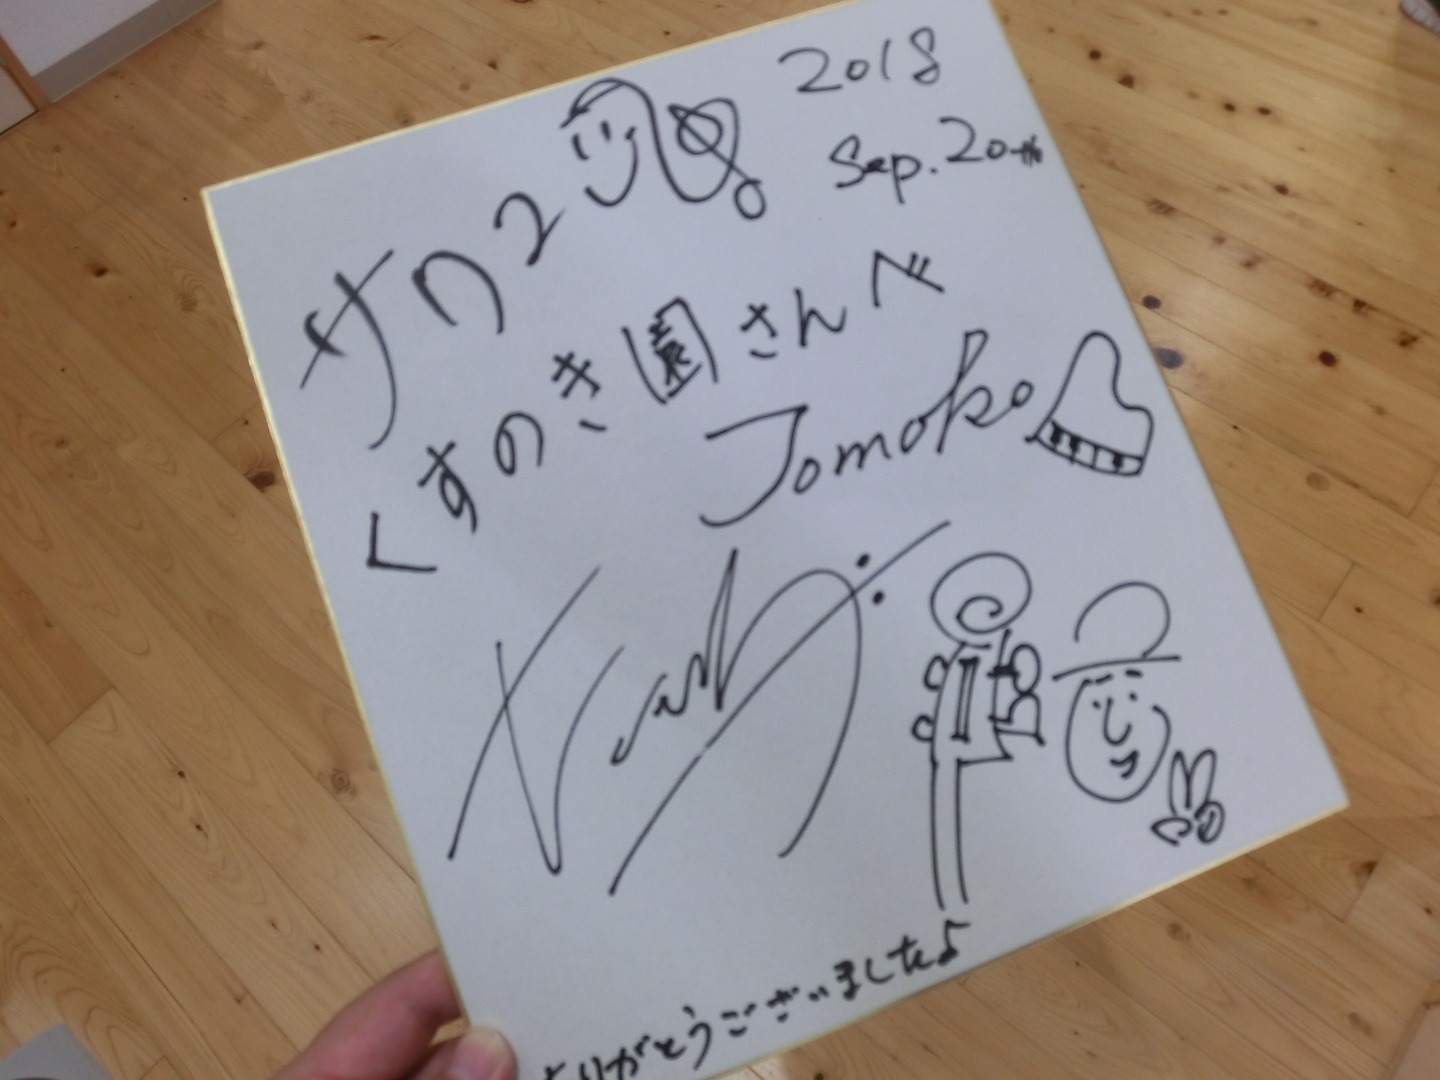 2018
Sep. 20th
サワ
くすのき園さんへ
Tomoko
ありがとうございました♪